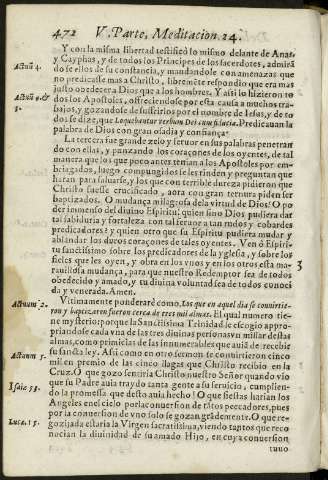 472 V. Parte, Meditacion 24.
Y con la misma libertad testificó lo mismo delante de Anas,
y Cayphas, y de todos los Principes de los sacerdotes, admirã
Actuũ 4. do se ellos de su constancia, y mandandole con amenazas que
no predicasse mas a Christo, libremẽte respondio que era mas
justo obedecer a Dios que a los hombres. Y assi lo hizieron to
Actuũ 4. & dos los Apostoles, offreciendose por esta causa a muchos tra-
5. bajos, y gozandose de sufrirlos por el nombre de Iesus, y de to
dos se dize, que Loquebantur verbum Dei cum fiducia. Predicauan la
palabra de Dios con gran osadia y confiança.
La tercera fue grande zelo y feruor en sus palabras penetran
do con ellas, y punzando los coraçones de los oyentes, de tal
manera que los que poco antes tenian a los Apostoles por em-
briagados, luego compungidos se les rinden y preguntan que
harian para saluarse, y los que con terrible dureza pidieron que
Christo fuesse crucificado, aora con gran ternura piden ser
baptizados. O mudança milagrosa de la virtud de Dios! O po
der immenso del diuino Espiritu! quien sino Dios pudiera dar
tal sabiduria y fortaleza con tal feruor a tan rudos y cobardes
predicadores? y quien otro que su Espiritu pudiera mudar y
ablandar los duros coraçones de tales oyentes. Ven ó Espiri-
tu sanctissimo sobre los predicadores de la yglesia, y sobre los
fieles que les oyen, y obra en los vnos y en los otros esta ma-
rauillosa mudança, para que nuestro Redemptor sea de todos
obedecido y amado, y tu diuina voluntad sea de todos conoci
da y venerada. Amen.
Actuum 2. Vltimamente ponderaré como, Los que en aquel dia se conuirtie-
ron y baptizaron fueron cerca de tres mil almas. El qual numero tie-
ne mysterio: porque la Sanctissima Trinidad le escogio appro-
priandose cada vna de las tres diuinas personas vn millar destas
almas, como primicias de las innumerables que auia de recebir
Actuum 5. su sancta ley. Assi como en otro sermon se conuirtieron cinco
mil en premio de las cinco llagas que Christo recibio en la
Cruz. O que gozo sentiria Christo nuestro Señor quando vio
que su Padre auia traydo tanta gente a su seruicio, cumplien-
Isaie 53. do la promessa que desto auia hecho! O que fiestas harian los
Angeles en el cielo por la conuersion de tãtos peccadores, pues
Luca. 15. por la conuersion de vno solo se gozan grãdemente. O que re-
gozijada estaria la Virgen sacratissima, viendo tantos que reco
nocian la diuinidad de su amado Hijo, en cuya conuersion
tuuo
3